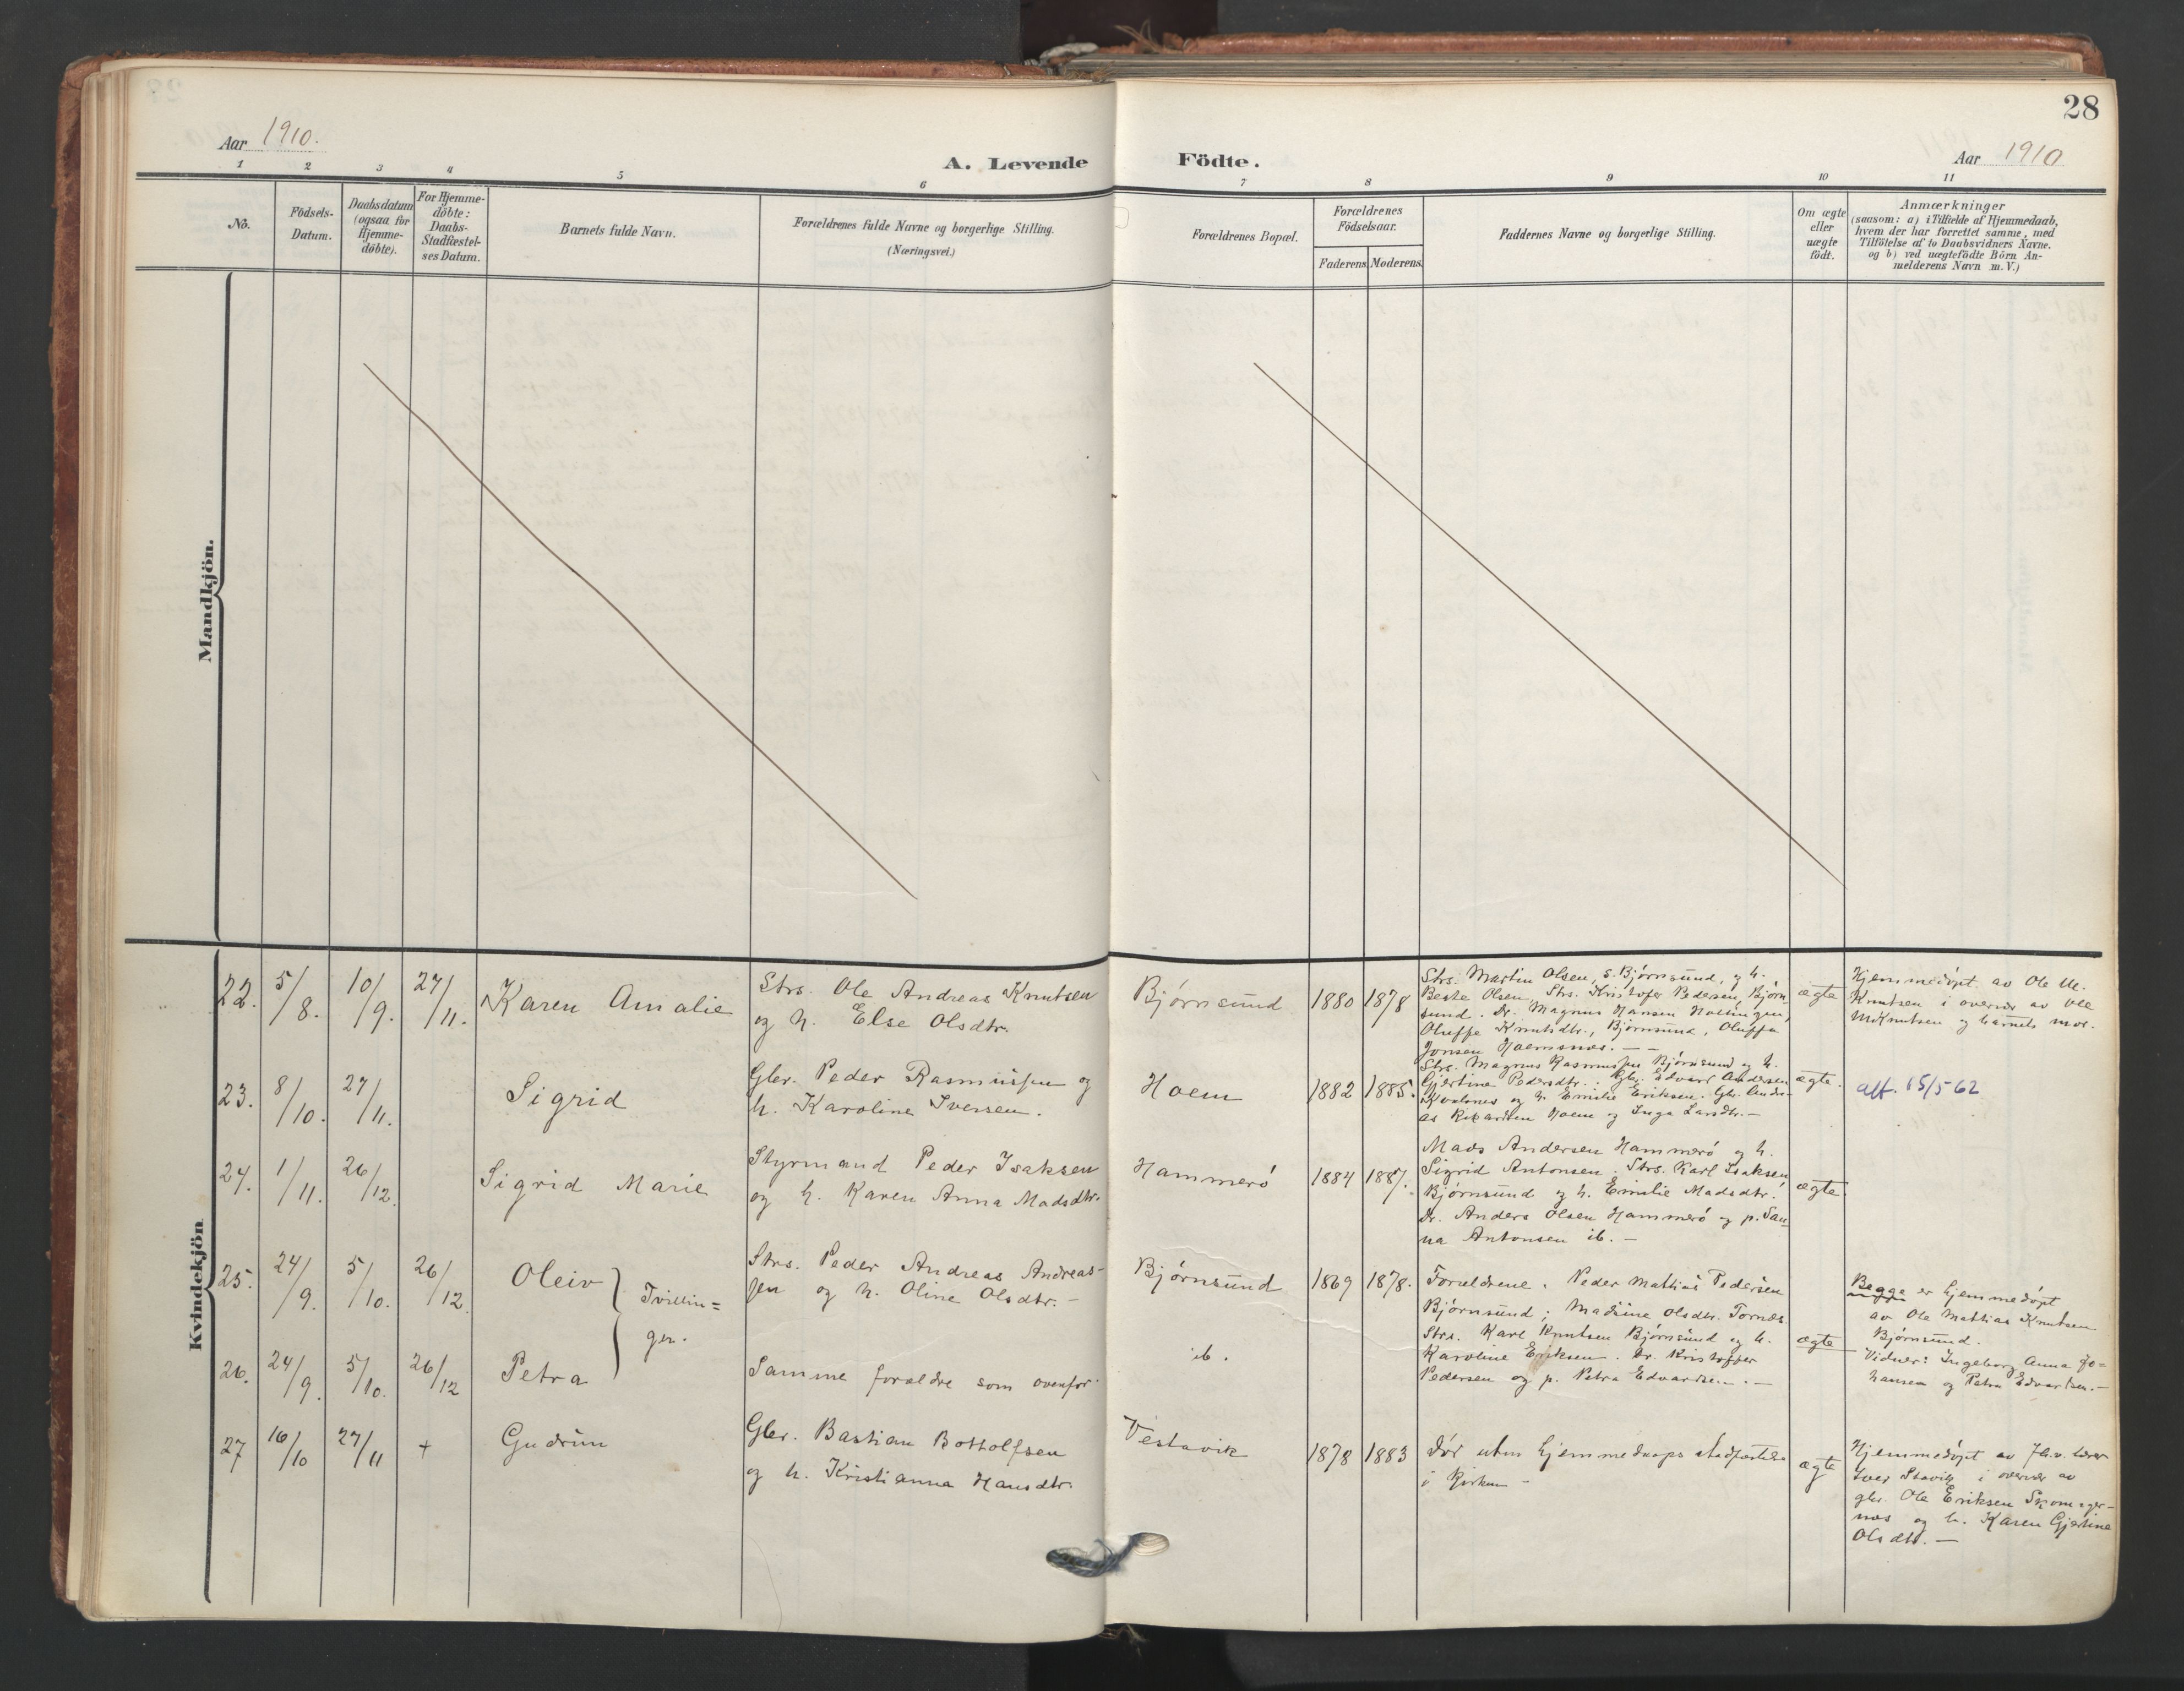 28
Aar 1910.
A. Levende Födte.
Aar 1910
1 2 3 4 5 6 7 8 9 10 11
No.
Födsels-
Datum.
Daabsdatum
(ogsaa for
Hjemme-
döbte).
For Hjemme-
döbte:
Daabs-
Stadfæstel-
ses Datum.
Barnets fulde Navn.
Forældrenes fulde Navne og borgerlige Stilling.
(Næringsvei.)
Forældrenes Bopæl.
Forældrenes
Födselsaar.
Faderens. Moderens.
Faddernes Navne og borgerlige Stilling.
Om ægte
eller
uægte
födt.
Anmærkninger
(saasom: a) i Tilfælde af Hjemmedaab,
hvem der har forrettet samme, med
Tilföielse af to Daabsvidners Navne.
og b) ved uægtefödte Börn An-
melderens Navn m.V.)
Mandkjön.
Kvindekjön
22. 5/8. 10/9. 27/11. Karen Amalie
Strs. Ole Andreas Knutsen
og h. Else Olsdtr.
Bjørnsund 1880 1878
Strs. Martin Olsen, s. Bjørnsund, og h.
Beate Olsen, Strs. Kristofer Pedersen, Bjørn
sund. Dr. Magnus Hansen
Oluffe Knutsdtr., Bjørnsund, Oluffa
Jonsen Hoemsnes. — —
ægte
Hjemmedøpt av Ole M.
Knutsen i overvær av Ole
M Knutsen og barnets mor.
23. 8/10. 27/11. Sigrid
Gbr. Peder Rasmussen og
h. Karoline Iversen.
Hoem 1882 1885.
Strs. Magnus Rasmussen Bjørnsund og h.
Gjertine Pedersdtr. Gbr. Edvard Andersen
Kvalsnes og h. Emilie Eriksen. Gbr. Andre-
as Rikardsen Hoem og Inga Larsdtr. —
ægte.
att. 15/5-62
24. 1/11. 26/12. Sigrid Marie
Styrmand Peder Isaksen
og h. Karen Anna Madsdtr.
Hammerø 1884 1887.
Mads Andersen Hammerø og h.
Sigrid Antonsen. Strs. Karl Isaksen
Bjørnsund og h. Emilie Madsdtr.
Dr. Anders Olsen Hammerø og p. San-
na Antonsen ib. —
ægte
25. 24/9. 5/10. 26/12. Oleiv
Tvillin=
ger.
Strs. Peder Andreas Andreas-
sen og h. Oline Olsdtr. —
Bjørnsund 1869 1878.
Forældrene. Peder Mattias Pedersen
Bjørnsund; Madsine Olsdtr. Tornes
Strs. Karl Knutsen Bjørnsund og h.
Karoline Eriksen. Dr. Kristoffer
Pedersen og p. Petra Edvardsen. —
ægte
Begge er hjemmedøpt
av Ole Mattias Knutsen
Bjørnsund.
Vidner: Ingeborg Anna Jo=
hansen og Petra Edvardsen. —
26. 24/9. 5/10. 26/12 Petra
Samme forældre som ovenfor
ib.
27 16/10 27/11 + Gudrun
Gbr. Bastian Bottolfsen
og h. Kristianna Hansdtr.
Vestavik 1878 1883
Død uten hjemmedaaps stadfæstelse
i kirken —
ægte
Hjemmedøpt av fhv. lærer
Iver Stavik i overvær av
gbr. Ole Eriksen Skomager-
nes og h. Karen Gjertine
Olsdtr. —